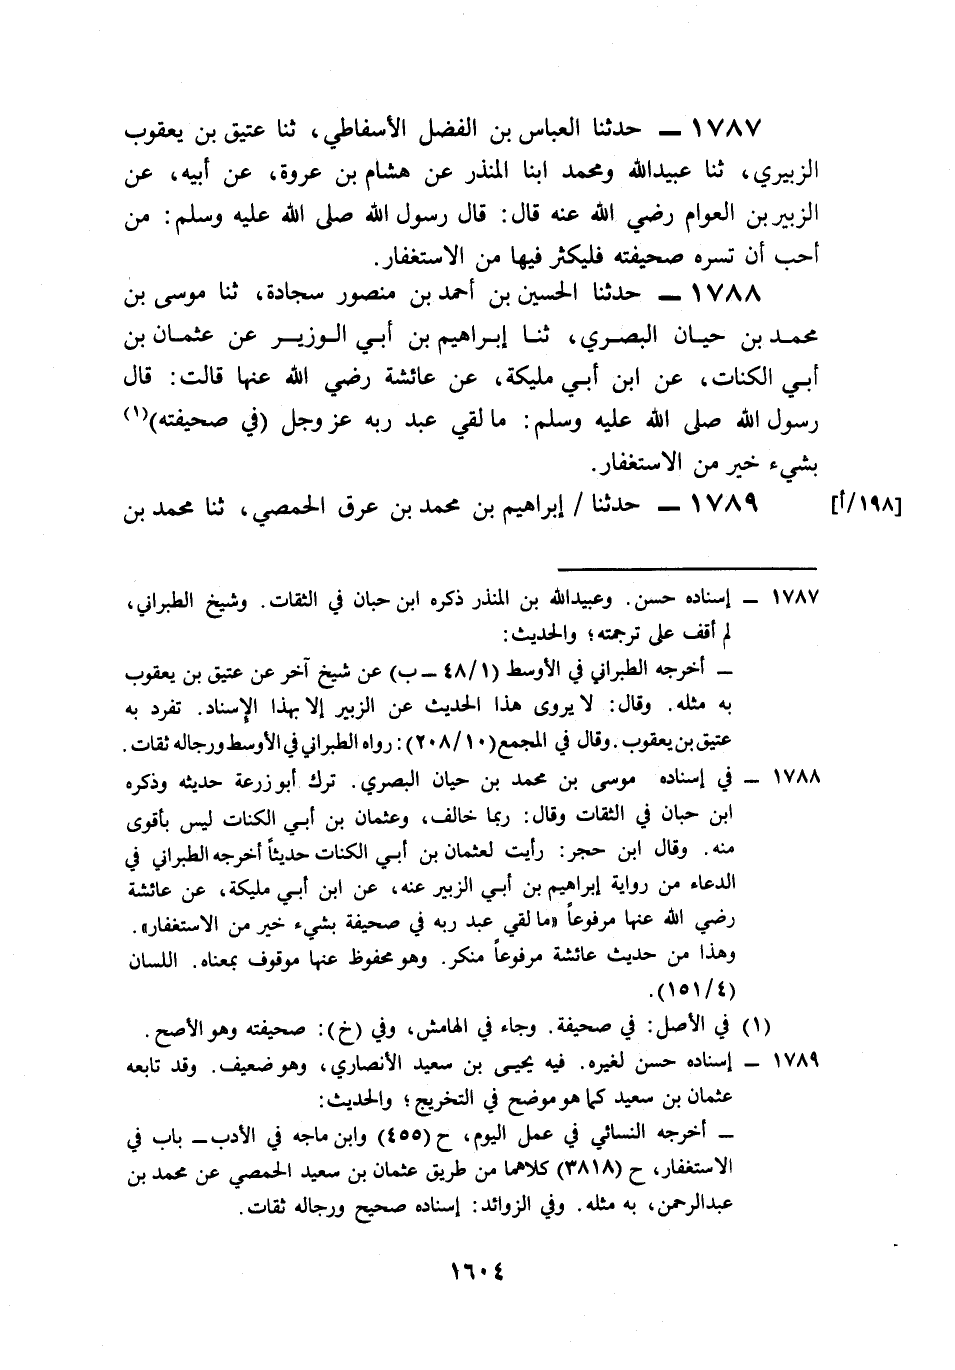 ١٧٨٧ ــ حدثنا العباس بن الفضل الأسفاطي، ثنا عتيق بن يعقوب
الزبيري، ثنا عبيدالله ومحمد ابنا المنذر عن هشام بن عروة، عن أبيه، عن
الزبير بن العوام رضي الله عنه قال: قال رسول الله صلى الله عليه وسلم: من
أحب أن تسره صحيفته فليكثر فيها من الاستغفار.
١٧٨٨ ــ حدثنا الحسين بن أحمد بن منصور سجادة، ثنا موسى بن
محمد بن حيان البصري، ثنا إبراهيم بن أبي الوزير عن عثمان بن
أبي الكنات، عن ابن أبي مليكة، عن عائشة رضي الله عنها قالت: قال
رسول الله صلى الله عليه وسلم: ما لقي عبد ربه عز وجل (في صحيفته)(١)
بشيء خير من الاستغفار.
١٧٨٩ ــ حدثنا / إبراهيم بن محمد بن عرق الحمصي، ثنا محمد بن [١٩٨/أ]
١٧٨٧ ــ إسناده حسن. وعبيدالله بن المنذر ذكره ابن حبان في الثقات. وشيخ الطبراني،
لم أقف على ترجمته؛ والحديث:
ــ أخرجه الطبراني في الأوسط (٤٨/١ ــ ب) عن شيخ آخر عن عتيق بن يعقوب
به مثله. وقال: لا يروى هذا الحديث عن الزبير إلا بهذا الإسناد. تفرد به
عتيق بن يعقوب. وقال في المجمع (٢٠٨/١٠): رواه الطبراني في الأوسط ورجاله ثقات.
١٧٨٨ ــ في إسناده موسى بن محمد بن حيان البصري. ترك أبو زرعة حديثه وذكره
ابن حبان في الثقات وقال: ربما خالف، وعثمان بن أبي الكنات ليس بأقوى
منه. وقال ابن حجر: رأيت لعثمان بن أبي الكنات حديثاً أخرجه الطبراني في
الدعاء من رواية إبراهيم بن أبي الزبير عنه، عن ابن أبي مليكة، عن عائشة
رضي الله عنها مرفوعاً «ما لقي عبد ربه في صحيفة بشيء خير من الاستغفار».
وهذا من حديث عائشة مرفوعاً منكر. وهو محفوظ عنها موقوف بمعناه. اللسان
(١٥١/٤).
(١) في الأصل: في صحيفة. وجاء في الهامش، وفي (خ): صحيفته وهو الأصح.
١٧٨٩ ــ إسناده حسن لغيره. فيه يحيى بن سعيد الأنصاري، وهو ضعيف. وقد تابعه
عثمان بن سعيد كما هو موضح في التخريج؛ والحديث:
ــ أخرجه النسائي في عمل اليوم، ح (٤٥٥) وابن ماجه في الأدب ــ باب في
الاستغفار، ح (٣٨١٨) كلاهما من طريق عثمان بن سعيد الحمصي عن محمد بن
عبدالرحمن، به مثله. وفي الزوائد: إسناده صحيح ورجاله ثقات.
١٦٠٤